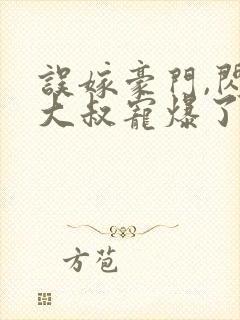 誤嫁豪門,閃
大叔寵爆了
方苞